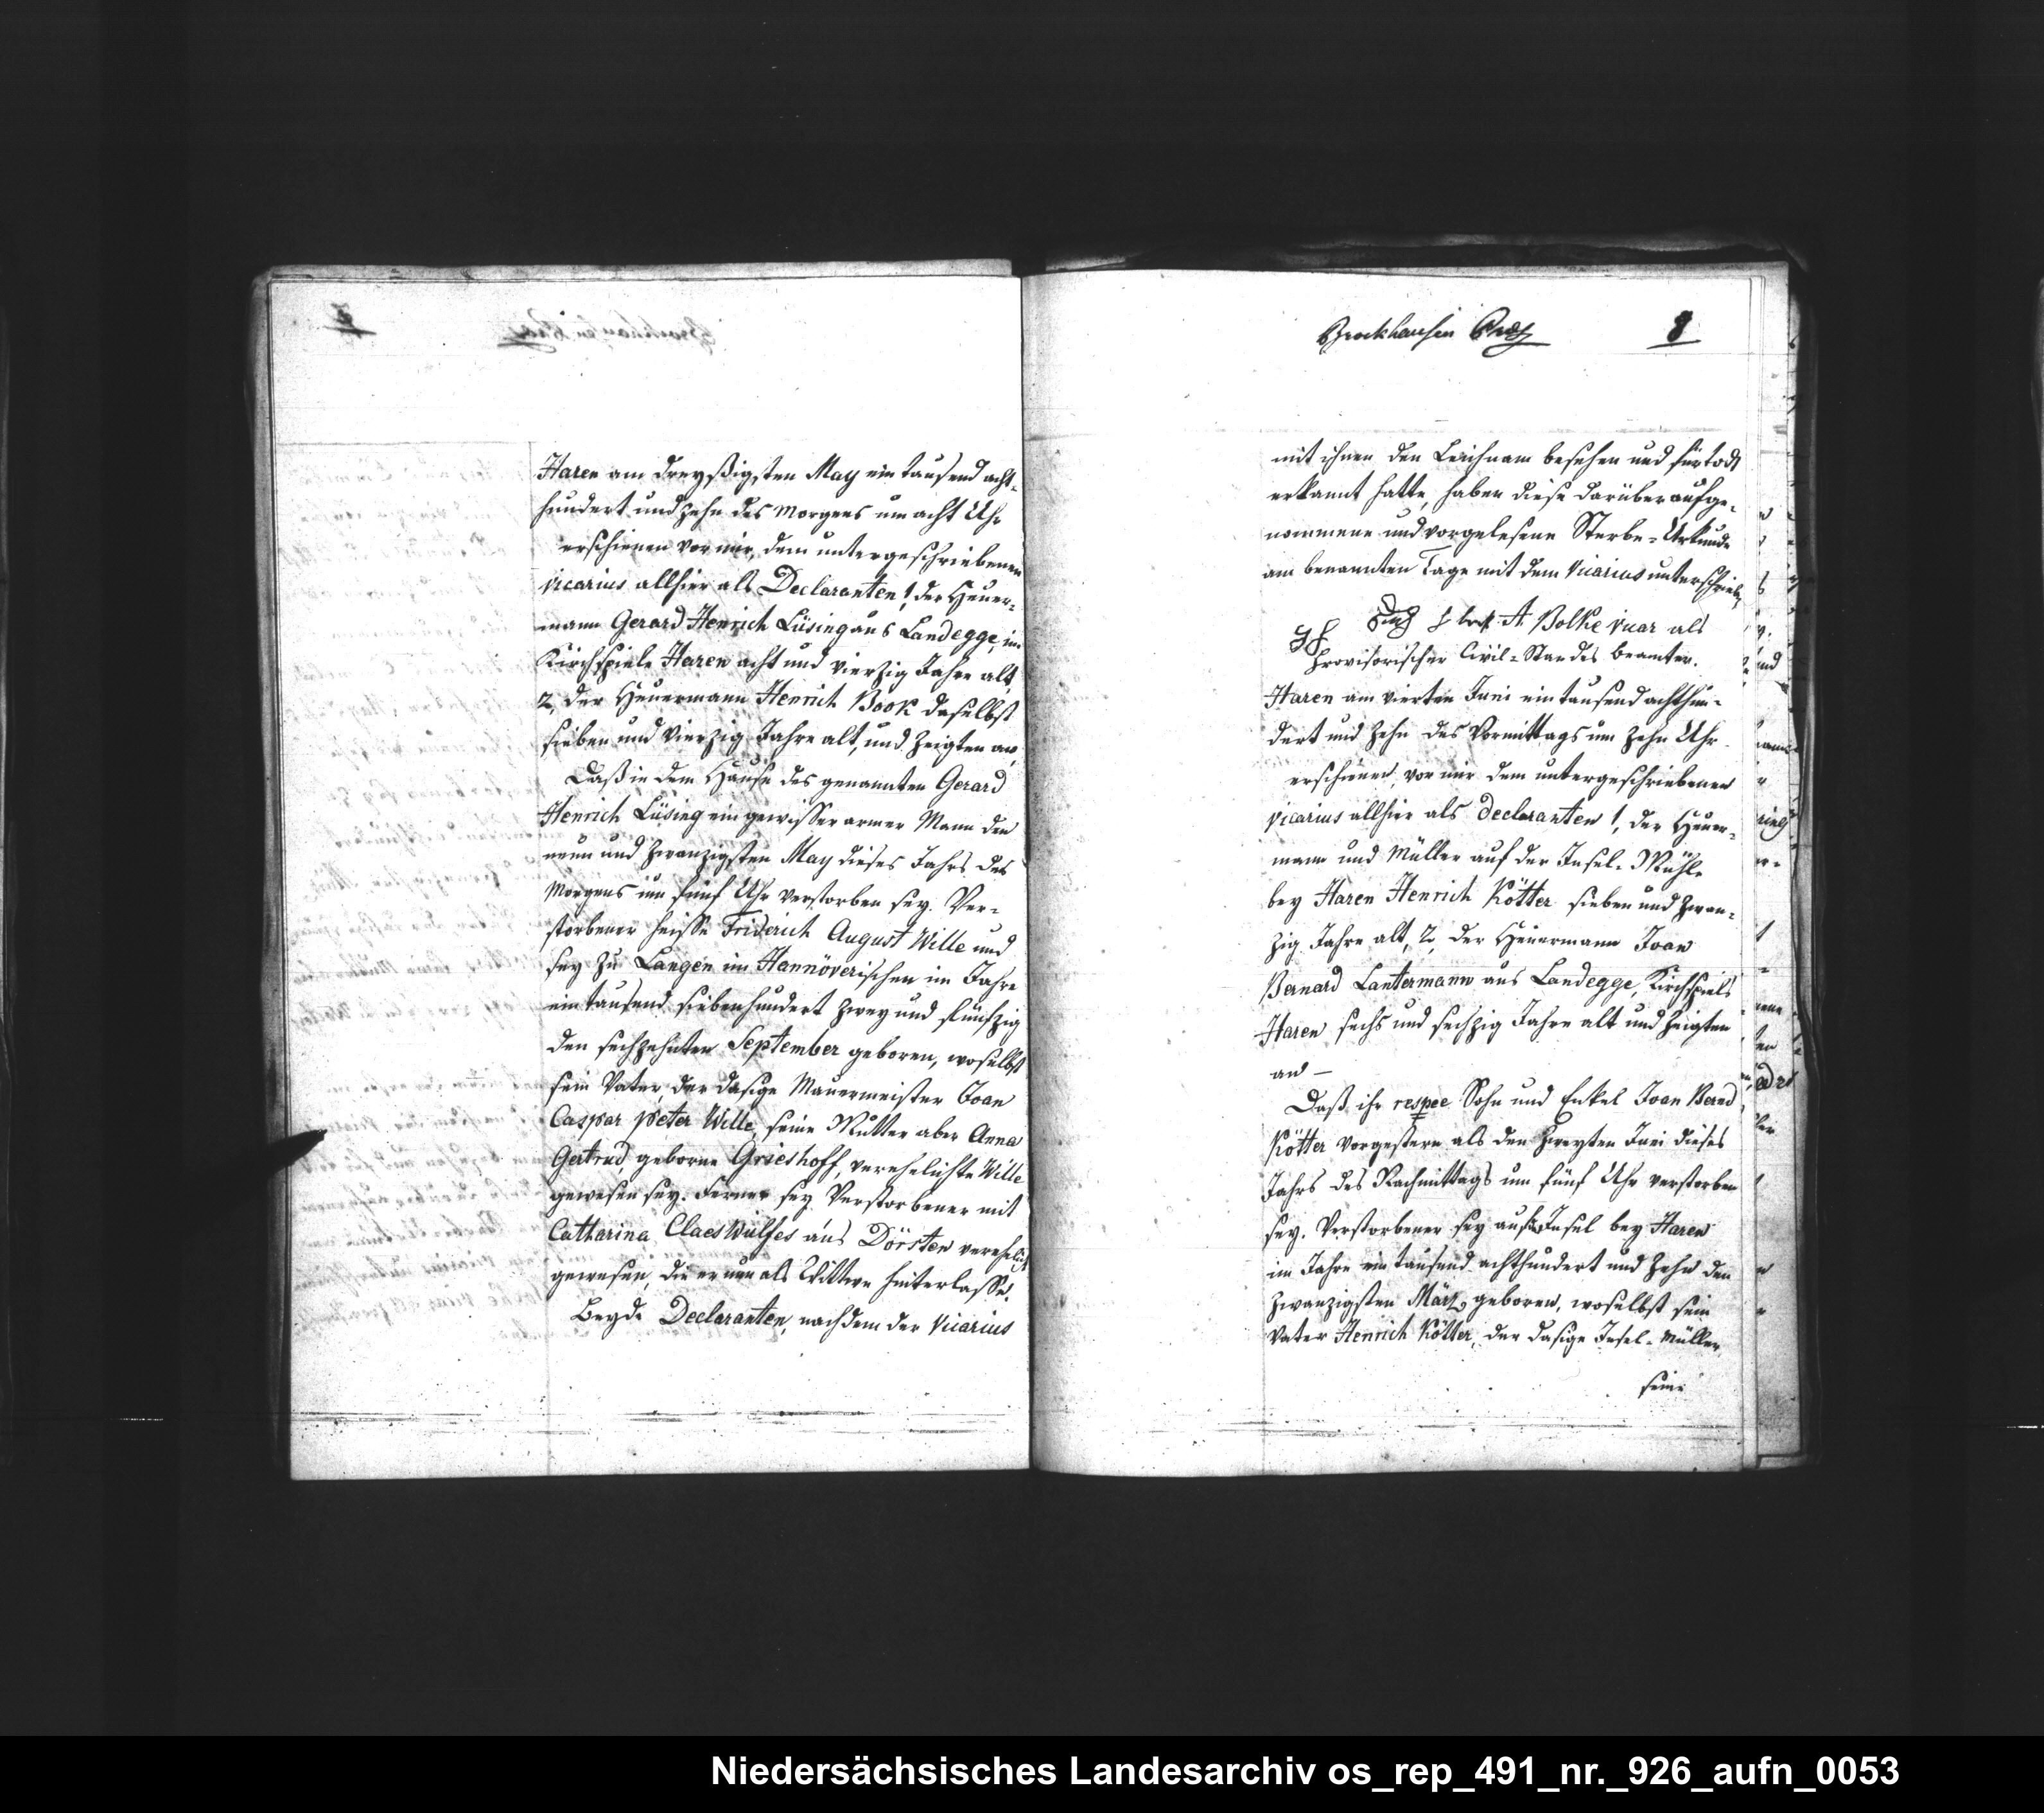 Haren am dreyßigsten May ein tausend acht-
hundert und zehn des Morgens um acht Uhr
erschienen vor mir, dem untergeschriebenen
Vicarius allhier als Declaranten 1, der Heuer-
mann Gerard Henrich Lüsing aus Landegge, im
Kirchspiele Haren acht und vierzig Jahre alt
2, der Heuermann Henrich Book daselbst
sieben und vierzig Jahre alt, und zeigten an,
Daß in dem Hause des genannten Gerard
Henrich Lüsing ein gewisser armer Mann den
neun und zwanzigsten May dieses Jahrs des
Morgens um fünf Uhr verstorben sey. Ver-
storbener heisse Friderich August Wille und
sey zu Langen im Hannöverischen im Jahre
ein tausend siebenhundert zwey und fünfzig
den sechzehnten September geboren, woselbst
sein Vater, der dasige Mauermeister Joan
Caspar Peter Wille, seine Mutter aber Anna
Gertrud, geborne Grieshoff, verehelichte Wille
gewesen sey. Ferner sey Verstorbener mit
Catharina Claes Wülfes aus Dörsten verehelicht
gewesen, die er nun als Wittwe hinterlasse.
Beyde Declaranten, nachdem der Vicarius
Brockhausen 8
mit ihnen den Leichnam besehen und für todt
erkannt hatte, haben diese darüber aufge-
nommene und vorgelesene Sterbe-Urkunde
am benannten Tage mit dem Vicarius unterschrieben
A. Bolke Vicar als
Provisorischer Civil-Standes Beamter.
Haren am vierten Juni ein tausend achthun-
dert und zehn des Vormittags um zehn Uhr
erschienen, vor mir dem untergeschriebenen
Vicarius allhier als Declaranten 1, der Heuer-
mann und Müller auf der Insel-Mühle
bey Haren Henrich Kötter sieben und zwan-
zig Jahre alt, 2, der Heuermann Joan
Bernard Lantermann aus Landegge, Kirchspiels
Haren sechs und sechzig Jahre alt und zeigten
an –
Daß ihr respee Sohn und Enkel Joan Bernd
Kötter vorgestern als den zweyten Juni dieses
Jahrs des Nachmittags um fünf Uhr verstorben
sey. Verstorbener sey auf der Insel bey Haren
im Jahre ein tausend achthundert und zehn den
zwanzigsten März, geboren, woselbst sein
Vater Henrich Kötter, der dasige Insel-Müller,
seine
Niedersächsisches Landesarchiv os_rep_491_nr._926_aufn_0053